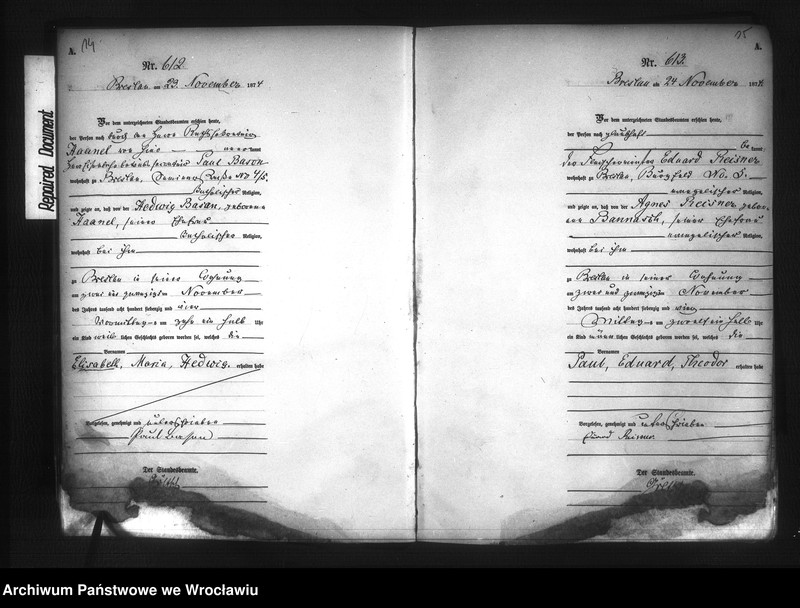 A. 14
Nr. 612
Breslau am 23. November 1874
Vor dem unterzeichneten Standesbeamten erschien heute,
der Person nach durch den Herrn
Haanel von hier kannt
Paul Bason
wohnhaft zu Breslau, No 4/5
katholischer Religion,
und zeigte an, daß von der Hedwig Bason, geborene
Haanel, seiner Ehefrau
katholischer Religion,
wohnhaft bei ihm
zu Breslau in seiner Wohnung
am zwei und zwanzigsten November
des Jahres tausend acht hundert siebenzig und vier
Vormittags um zehn ein halb Uhr
ein Kind weiblichen Geschlechts geboren worden sei, welches die
Vornamen
Elisabeth, Maria, Hedwig. erhalten habe
Vorgelesen, genehmigt und unterschrieben
Paul Bason
Der Standesbeamte.
Repaired Document
15
A.
Nr. 613.
Breslau am 24 November 1874
Vor dem unterzeichneten Standesbeamten erschien heute,
der Person nach glaubhaft
be kannt
der Eduard Reisner
wohnhaft zu Breslau, Bürgfeld No. 5.
evangelischer Religion,
und zeigte an, daß von der Agnes Reisner, gebor-
ene Bannasch, seiner Ehefrau
evangelischer Religion,
wohnhaft bei ihm
zu Breslau in seiner Wohnung
am zwei und zwanzigsten November
des Jahres tausend acht hundert siebenzig und vier
Mittag um zwölf ein halb Uhr
ein Kind männlichen Geschlechts geboren worden sei, welches die
Vornamen
Paul, Eduard, Theodor erhalten habe
Vorgelesen, genehmigt und unterschrieben
Reisner
Der Standesbeamte.
Archiwum Państwowe we Wrocławiu